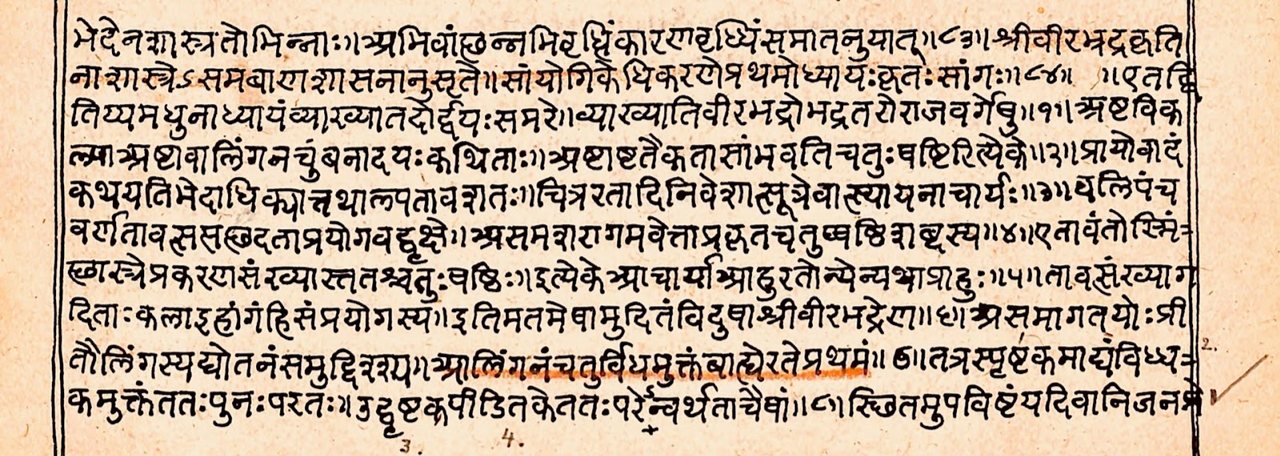 भेदेनशास्त्रतोभिन्नाः॥अभिवांछन्नभिवृधिंकारणवृध्धिंसमातनुयात्॥८३॥श्रीवीरभद्रकृति
नाशास्त्रेऽसमबाणशासनानुसृते॥सांयोगिकेधिकरणेप्रथमोध्यायःकृतःसांगः॥८४॥ ॥एतद्वि
तिय्यमधुनाध्यायंव्याख्यातदोर्द्वयःसमरे॥व्याख्यातिवीरभद्रोभद्रतरोराजवर्गेषु॥१॥अष्टविक
ल्पाअष्टावालिंगनचुंबनादयःकथिताः॥अष्टाष्टतैकतासांभवतिचतुःषष्टिरित्येके॥२॥प्रायोवादं
कथयतिभेदाधिक्यात्तथाल्पतावशतः॥चित्ररतादिनिवेशात्सूत्रेवात्स्यायनाचार्यः॥३॥दलिपंच
वर्णतावत्ससछदताप्रयोगवद्वृक्षे॥असमशरागमवेत्ताप्रकृतचतुष्षष्ठिशब्दस्य॥४॥एतावंतोस्मिं=
छास्त्रेप्रकरणसंख्यास्ततश्चतुःषष्ठिः॥इत्येकेआचार्याआहुरतोन्येन्यथाप्राहुः॥५॥तावत्संख्याग
दिताःकलाइहांगंहिसंप्रयोगस्य॥इतिमतमेषामुदितंविदुषाश्रीवीरभद्रेण॥६॥असमागतयोःप्री
तौलिंगस्यद्योतनंसमुद्दिश्य॥आलिंगनंचतुर्विधमुक्तंबाह्येरतेप्रथमं॥७॥तत्रस्पृष्टकमाद्यंविध्ध= 2.
कमुक्तंततःपुनःपरतः॥उद्घृष्टकपीडितकेततःपरेन्वर्थताचैषां॥८॥स्छितमुपविष्टंयदिवानिजनमे
3. 4.